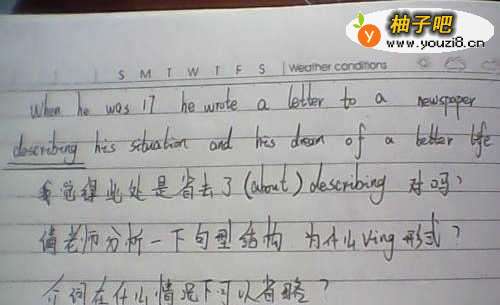 柚子吧
www.youzi8.cn
S M T W T F S Weather conditions
When he was 17 he wrote a letter to a newspaper
describing his situation and his dream of a better life
我觉得此处是省去了(about) describing 对吗?
请老师分析一下句型结构 为什么Ving形式?
介词在什么情况下可以省略?